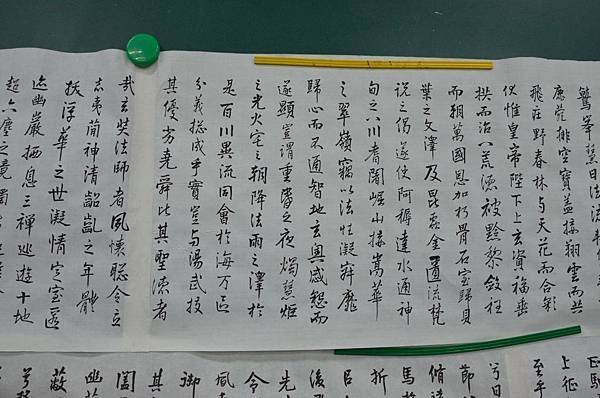 鷲峯慧日法
鹿菀排空寶蓋接翔雲而共
飛莊野春林與天花而合彩
伏惟皇帝陛下上玄資福垂
拱而治八荒德被黔黎斂衽
而朝萬國恩加朽骨石室歸貝
葉之文澤及昆蟲金匱流梵
說之偈遂使阿耨達水通神
甸之八川耆闍崛山接嵩華
之翠嶺竊以法性凝寂靡
歸心而不通智地玄奧感懇而
遂顯豈謂重昏之夜燭慧炬
之光火宅之朝降法雨之澤於
是百川異流同會於海万區
分義揔成乎實豈与湯武校
其優劣堯舜比其聖德者
哉玄奘法師者夙懷聰令立
志夷簡神清齠齔之年體
拔浮華之世凝情定室匿
迹幽巖栖息三禪巡遊十地
超六塵之境獨